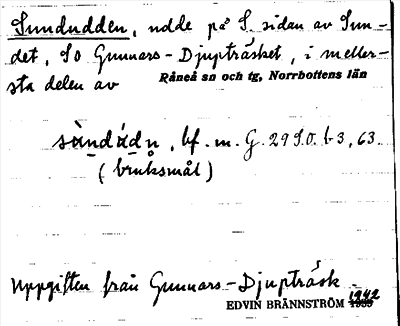 Sundudden, udde på S. sidan av Sun-
det, SO Gunnars-Djupträsket, i meller-
sta delen av Råneå sn och tg, Norrbottens län
sùndúdn, bf. m. G. 29 S.O. b-3, 63.
(bruksmål)
Uppgiften från Gunnars-Djupträsk
EDVIN BRÄNNSTRÖM 1942